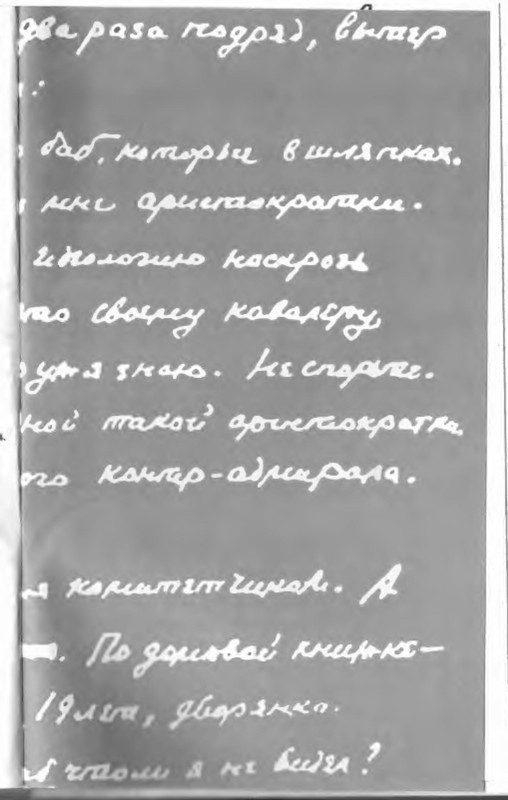 два раза подряд, вытер
:
баб, которые в шляпках.
мне аристократки.
идеологию насквозь
своему кавалеру,
уж я знаю. Не спорьте.
ной такой аристократки,
ого контр-адмирала.
я комитетчиком. А
. По домовой книжке—
19 лет, дворянка.
чтоли я не видел?